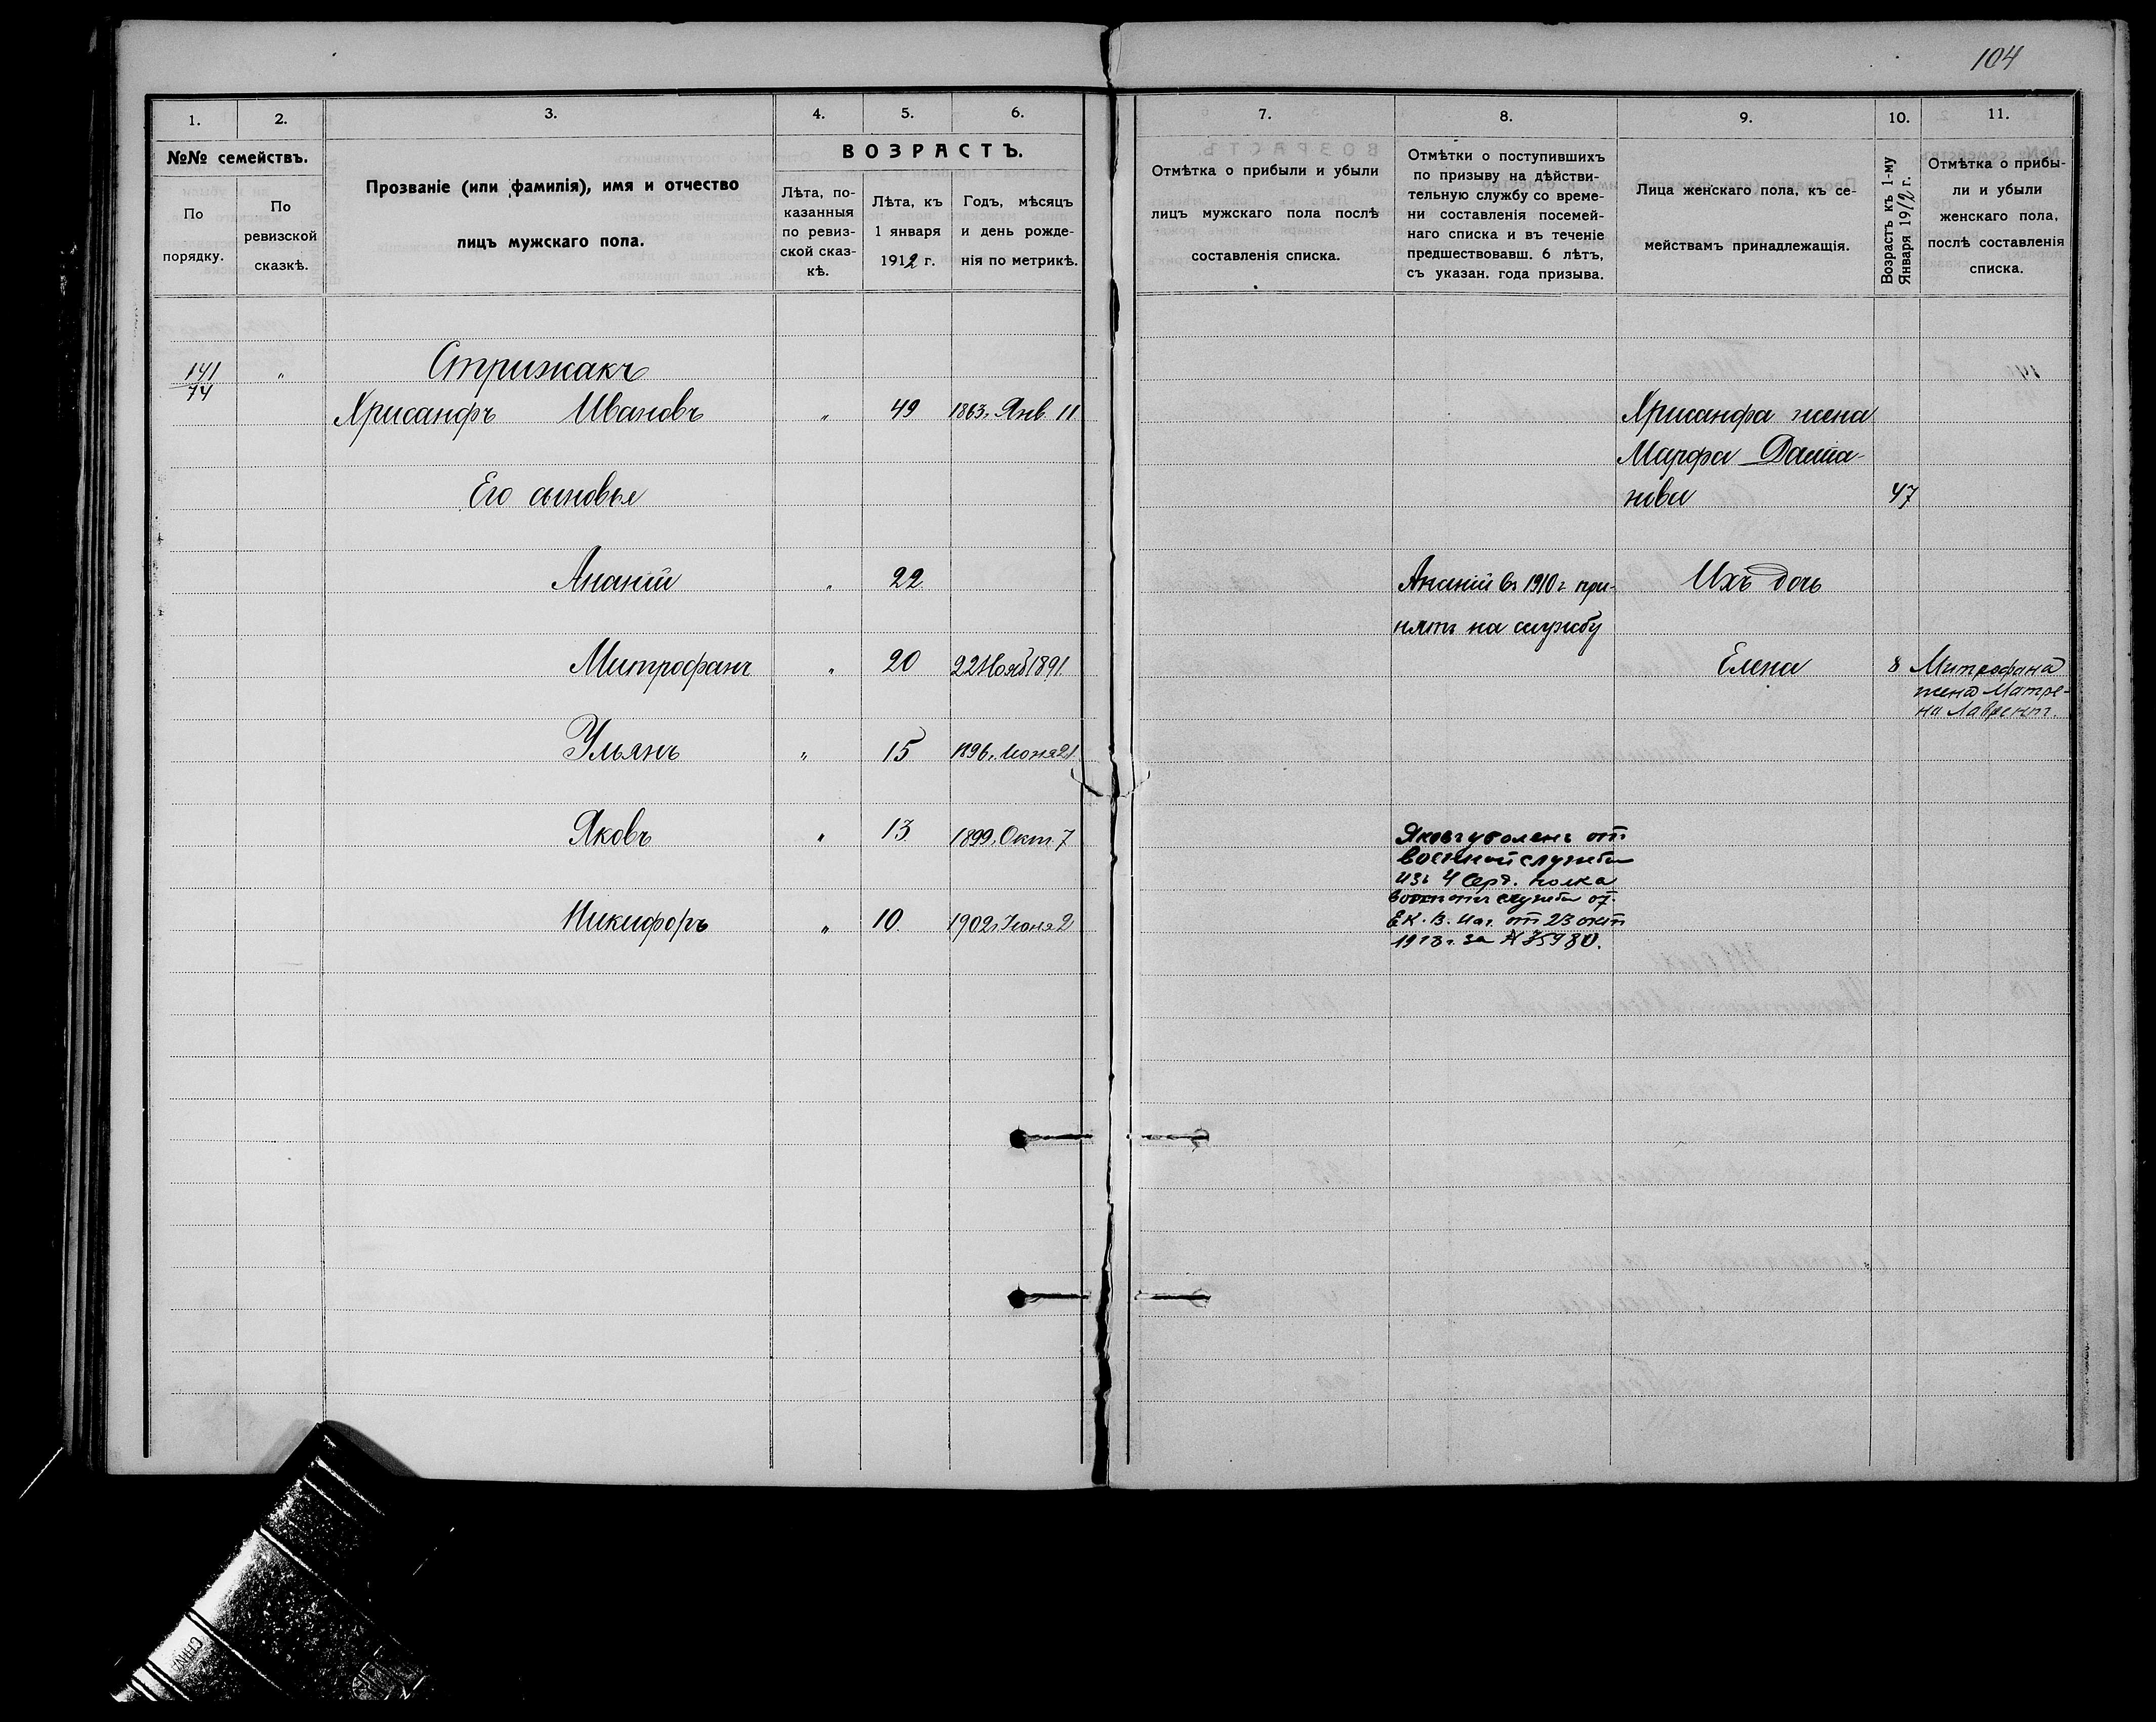 104
1.
2.
3.
4.
5.
6.
7.
8.
9.
10.
11.
№№ семействъ.
По порядку.
По ревизской сказкѣ.
Прозваніе (или фамилія), имя и отчество
лицъ мужскаго пола.
ВОЗРАСТЪ.
Лѣта, по-
казанныя
по ревиз-
ской сказ-
кѣ.
Лѣта, къ
1 января
1912 г.
Годъ, мѣсяцъ
и день рожде-
нія по метрикѣ.
Отмѣтка о прибыли и убыли
лицъ мужскаго пола послѣ
составленія списка.
Отмѣтки о поступившихъ
по призыву на дѣйстви-
тельную службу со време-
ни составленія посемей-
наго списка и въ теченіе
предшествовавш. 6 лѣтъ,
съ указан. года призыва.
Лица женскаго пола, къ се-
мействамъ принадлежащія.
Возрастъ къ 1-му
Января 1912 г.
Отмѣтка о прибы-
ли и убыли
женскаго пола,
послѣ составленія
списка.
141
74
"
Стрижакъ
Хрисанфъ Ивановъ " 49 1863 г. Янв. 11
Хрисанфа жена
Марфа
47
Его сыновья
Ананій " 22
Ананій въ 1910 г. при-
нятъ на службу
Ихъ дочь
Митрофанъ " 20 22 Нояб 1891
Елена 8
Митрофана
жена Матре-
на Лаврент.
Ульянъ " 15 1896 г. Іюня 21
Яковъ " 13 1899 г. Окт. 7
Яковъ уволенъ отъ
военной службы
изъ 4 Серд. полка
службы от.
от 23 окт
за № 35980.
Никифоръ " 10. 1902 г. Іюня 2